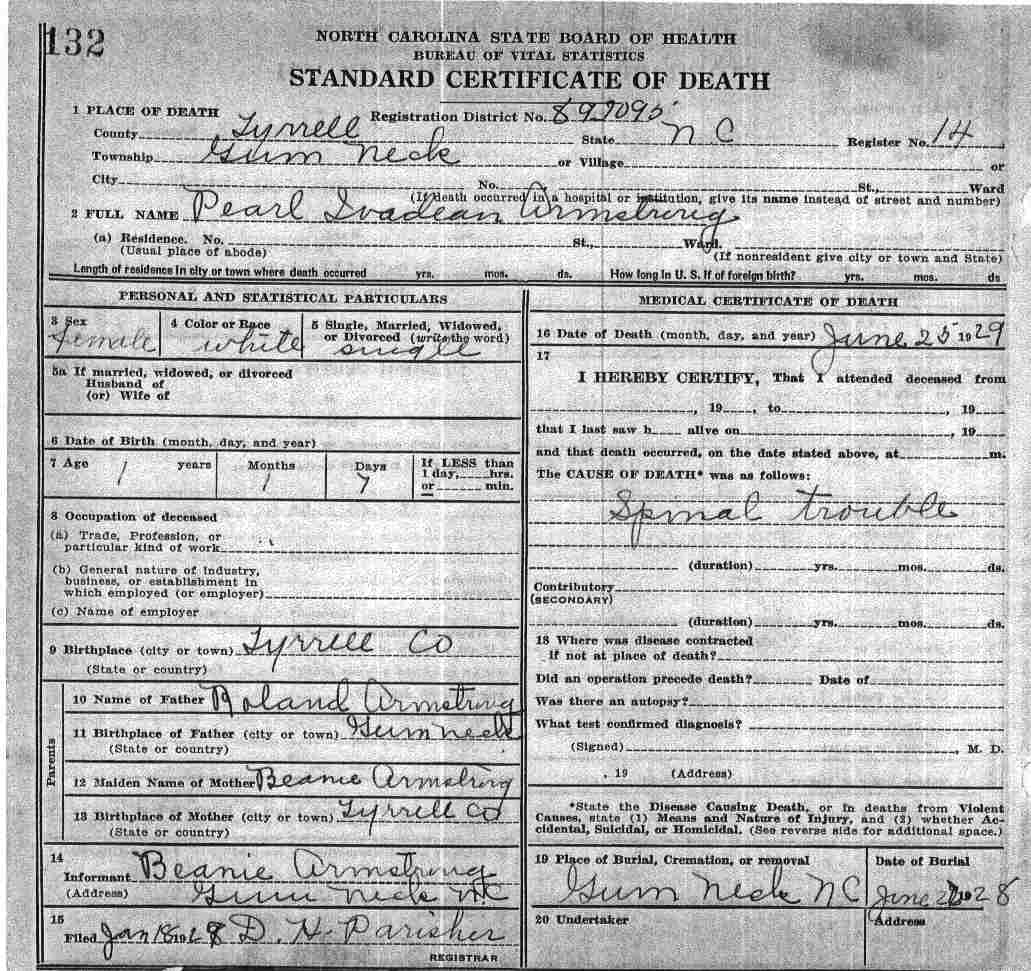 132
NORTH CAROLINA STATE BOARD OF HEALTH
BUREAU OF VITAL STATISTICS
STANDARD CERTIFICATE OF DEATH
1 PLACE OF DEATH Registration District No. 897095
County Tyrrell State N C Register No. 14
Township Gum Neck or Village or
City No. St., Ward
(If death occurred in a hospital or institution, give its name instead of street and number)
2 FULL NAME Pearl Ivadean Armstrong
(a) Residence. No. St., Ward.
(Usual place of abode) (If nonresident give city or town and State)
Length of residence in city or town where death occurred yrs. mos. ds. How long in U. S. if of foreign birth? yrs. mos. ds
PERSONAL AND STATISTICAL PARTICULARS
3 Sex
female
4 Color or Race
white
5 Single, Married, Widowed,
or Divorced (write the word)
single
5a If married, widowed, or divorced
Husband of
(or) Wife of
6 Date of Birth (month, day, and year)
7 Age 1 years
Months
1
Days
7
If LESS than
1 day, hrs.
or min.
8 Occupation of deceased
(a) Trade, Profession, or
particular kind of work
(b) General nature of industry,
business, or establishment in
which employed (or employer)
(c) Name of employer
9 Birthplace (city or town) Tyrrell Co
(State or country)
Parents
10 Name of Father Roland Armstrong
11 Birthplace of Father (city or town) Gum neck
(State or country)
12 Maiden Name of Mother Beanie Armstrong
13 Birthplace of Mother (city or town) Tyrrell Co
(State or country)
14
Informant Beanie Armstrong
(Address) Gum Neck NC
15
Filed Jan 18 1928 D. H. Parisher
REGISTRAR
MEDICAL CERTIFICATE OF DEATH
16 Date of Death (month, day, and year) June 25 1929
17
I HEREBY CERTIFY, That I attended deceased from
, 19 , to , 19
that I last saw h alive on , 19
and that death occurred, on the date stated above, at m.
The CAUSE OF DEATH* was as follows:
Spinal trouble
(duration) yrs. mos. ds.
Contributory
(SECONDARY)
(duration) yrs. mos. ds.
18 Where was disease contracted
if not at place of death?
Did an operation precede death? Date of
Was there an autopsy?
What test confirmed diagnosis?
(Signed) , M. D.
, 19 (Address)
*State the Disease Causing Death, or in deaths from Violent
Causes, state (1) Means and Nature of Injury, and (2) whether Ac-
cidental, Suicidal, or Homicidal. (See reverse side for additional space.)
19 Place of Burial, Cremation, or removal
Gum Neck NC
Date of Burial
June 1928
20 Undertaker
Address